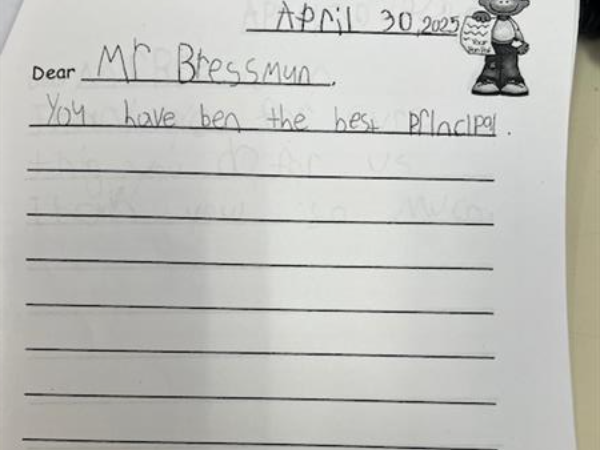 April 30, 2025
Dear Mr Bressmun,
You have ben the best principal.